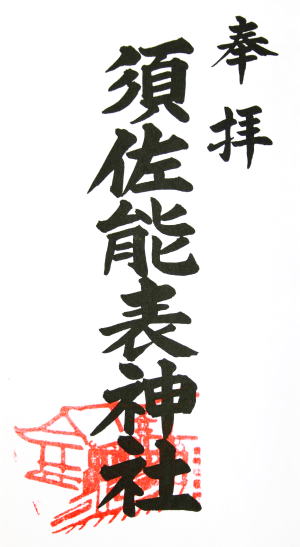 奉拝
須佐能表神社